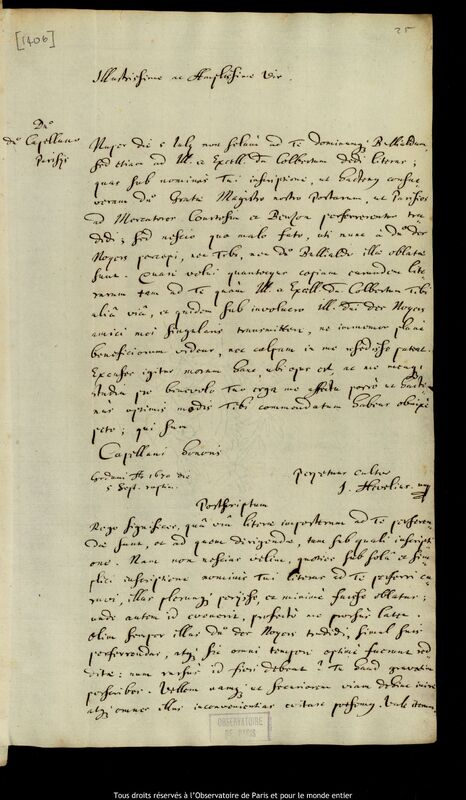 [1406]
25
Illustrissime ac Amplissime Vir.
Dno
de Capellano
Parisiis
Nuper die 5 Julij non solum ad Te Dominumq; Bullialdum,
sed etiam ad Ill. et Excell. Dn Colbertum dedi literas;
quas sub nominis Tui inscriptione, ut hactenus consue-
veram Dn Gratta Magistro nostro Postarum, ut Parisios
ad Mercatores Courtesin et Benson perferrerentur tra-
didi; sed nescio quo malo fato, uti nunc a Dn des
Noyers percepi, nec Tibi, nec Dn Bullialdo illae oblatae
sunt. Quare volui quantocyus copiam earundem lite-
rarum tam ad Te quam Ill. et Excell. Dn Colbertum Tibi
alia via, et quidem sub involucro Ill. Dni des Noyers
amici mei singularis transmittere, ne immemor plane
beneficiorum videar, nec culpam in me resedisse putes.
Excuses igitur moram hanc, ubi opus est, ac me meaq;
studia pro benevolo Tuo erga me affectu porro ut hacte-
nus optimis modis Tibi commendatum habeas obnixe
peto; qui sum
Capellani Honoris
Gedani Ao 1670 die
5 Sept. raptim.
Perpetuus cultor
J. Hevelius. mp
Postscriptum
Rogo significes, qua via literae imposterum ad Te perferen-
dae sunt, et ad quem dirigendae, tum sub quali inscripti-
one. Nam non nescius velim, quoties sub sola et sim-
plici inscriptione nominis Tui literas ad Te perferri cu-
ravi, illas plerumq; periisse, et minime fuisse oblatas;
unde autem id evenerit, profecto me prorsus latet.
Olim semper illas Dn des Noyers tradidi, simul suis
perferendas, atq; sic omni tempore optime fuerunt red-
ditae: num rursus id fieri debeat? Te haud gravatim
perscribes. Vellem namq; ut securiorem viam dehinc inire
atq; omnes illas inconvenientias evitare possemus. Vale iterum.
OBSERVATOIRE
DE PARIS
Tous droits réservés à l'Observatoire de Paris et pour le monde entier